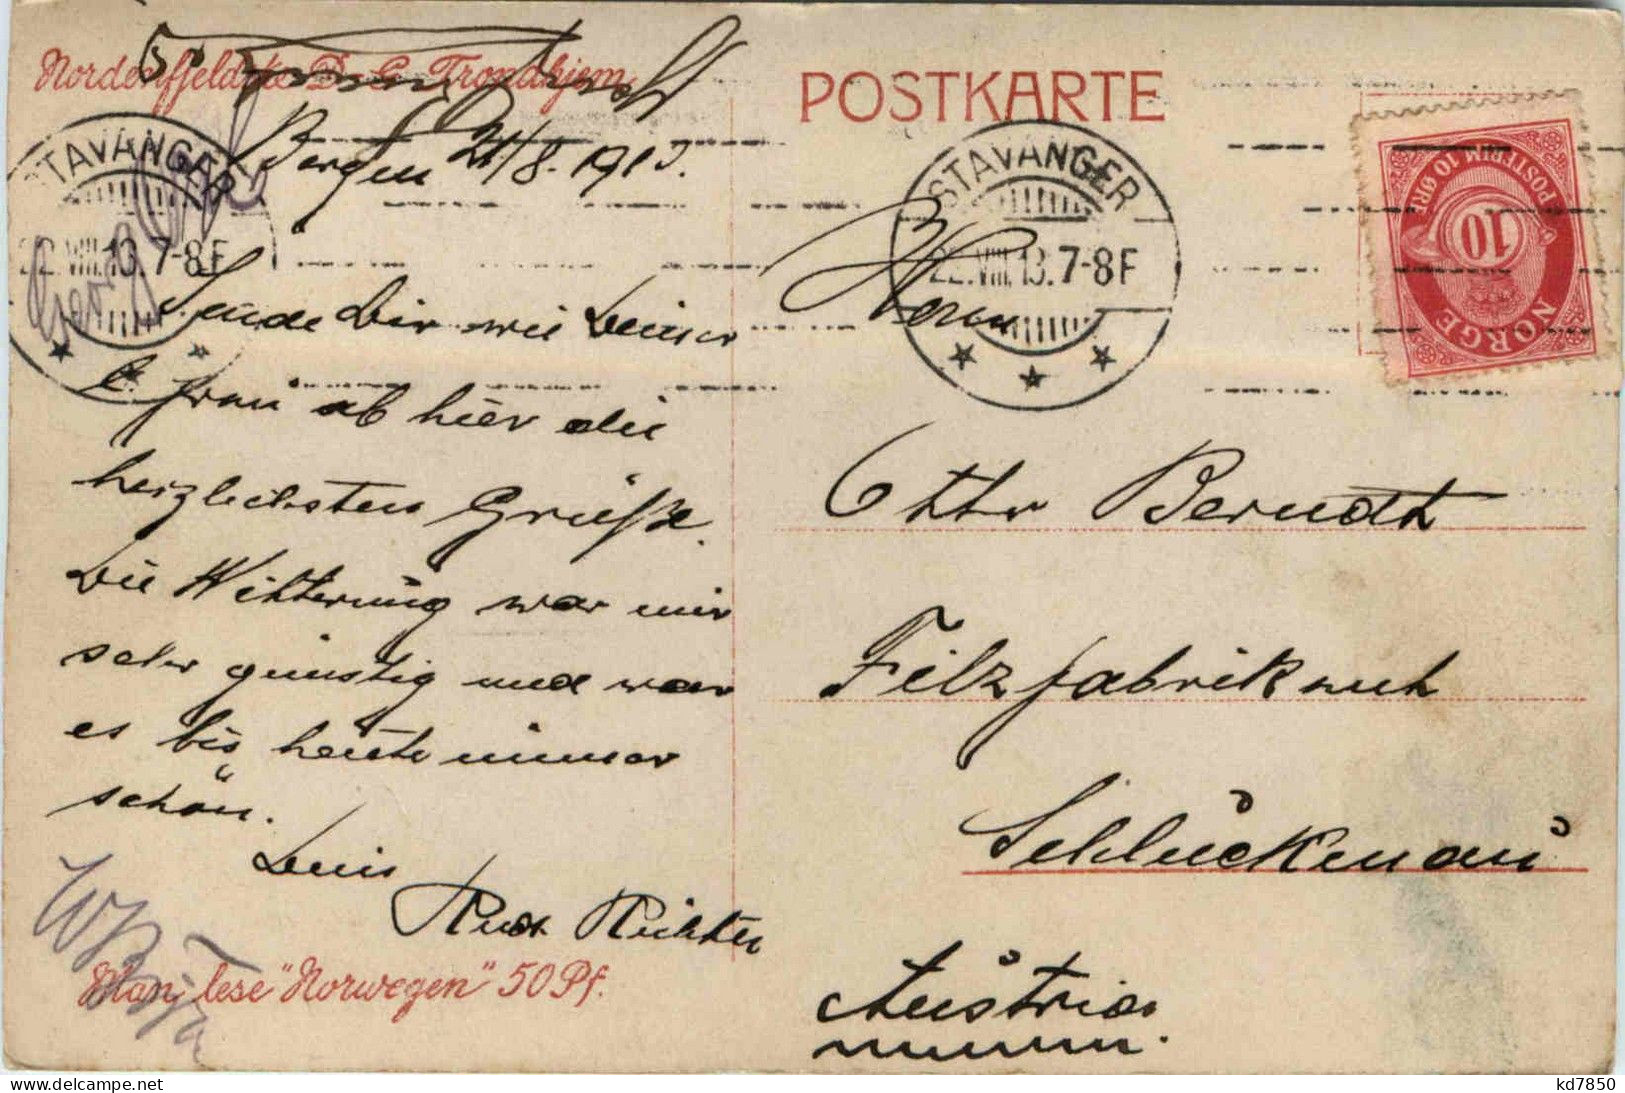 Nordenfjeldske D. S. Trondhjem
POSTKARTE
Bergen 21/8. 1913.
STAVANGER
22.VIII.13.7-8F
STAVANGER
22.VIII.13.7-8F
NORGE
POSTFRIM 10 ØRE
10
Sende Dir wie Deiner
l. Frau ab hier die
herzlichsten Grüße.
Die Witterung war mir
sehr günstig und war
es bis heute immer
schön.
Dein
Rud. Richter
Man lese "Norwegen" 50 Pf.
Herrn
Otto Berndt
Filzfabrikant
Schluckenau
Austria
kd7850